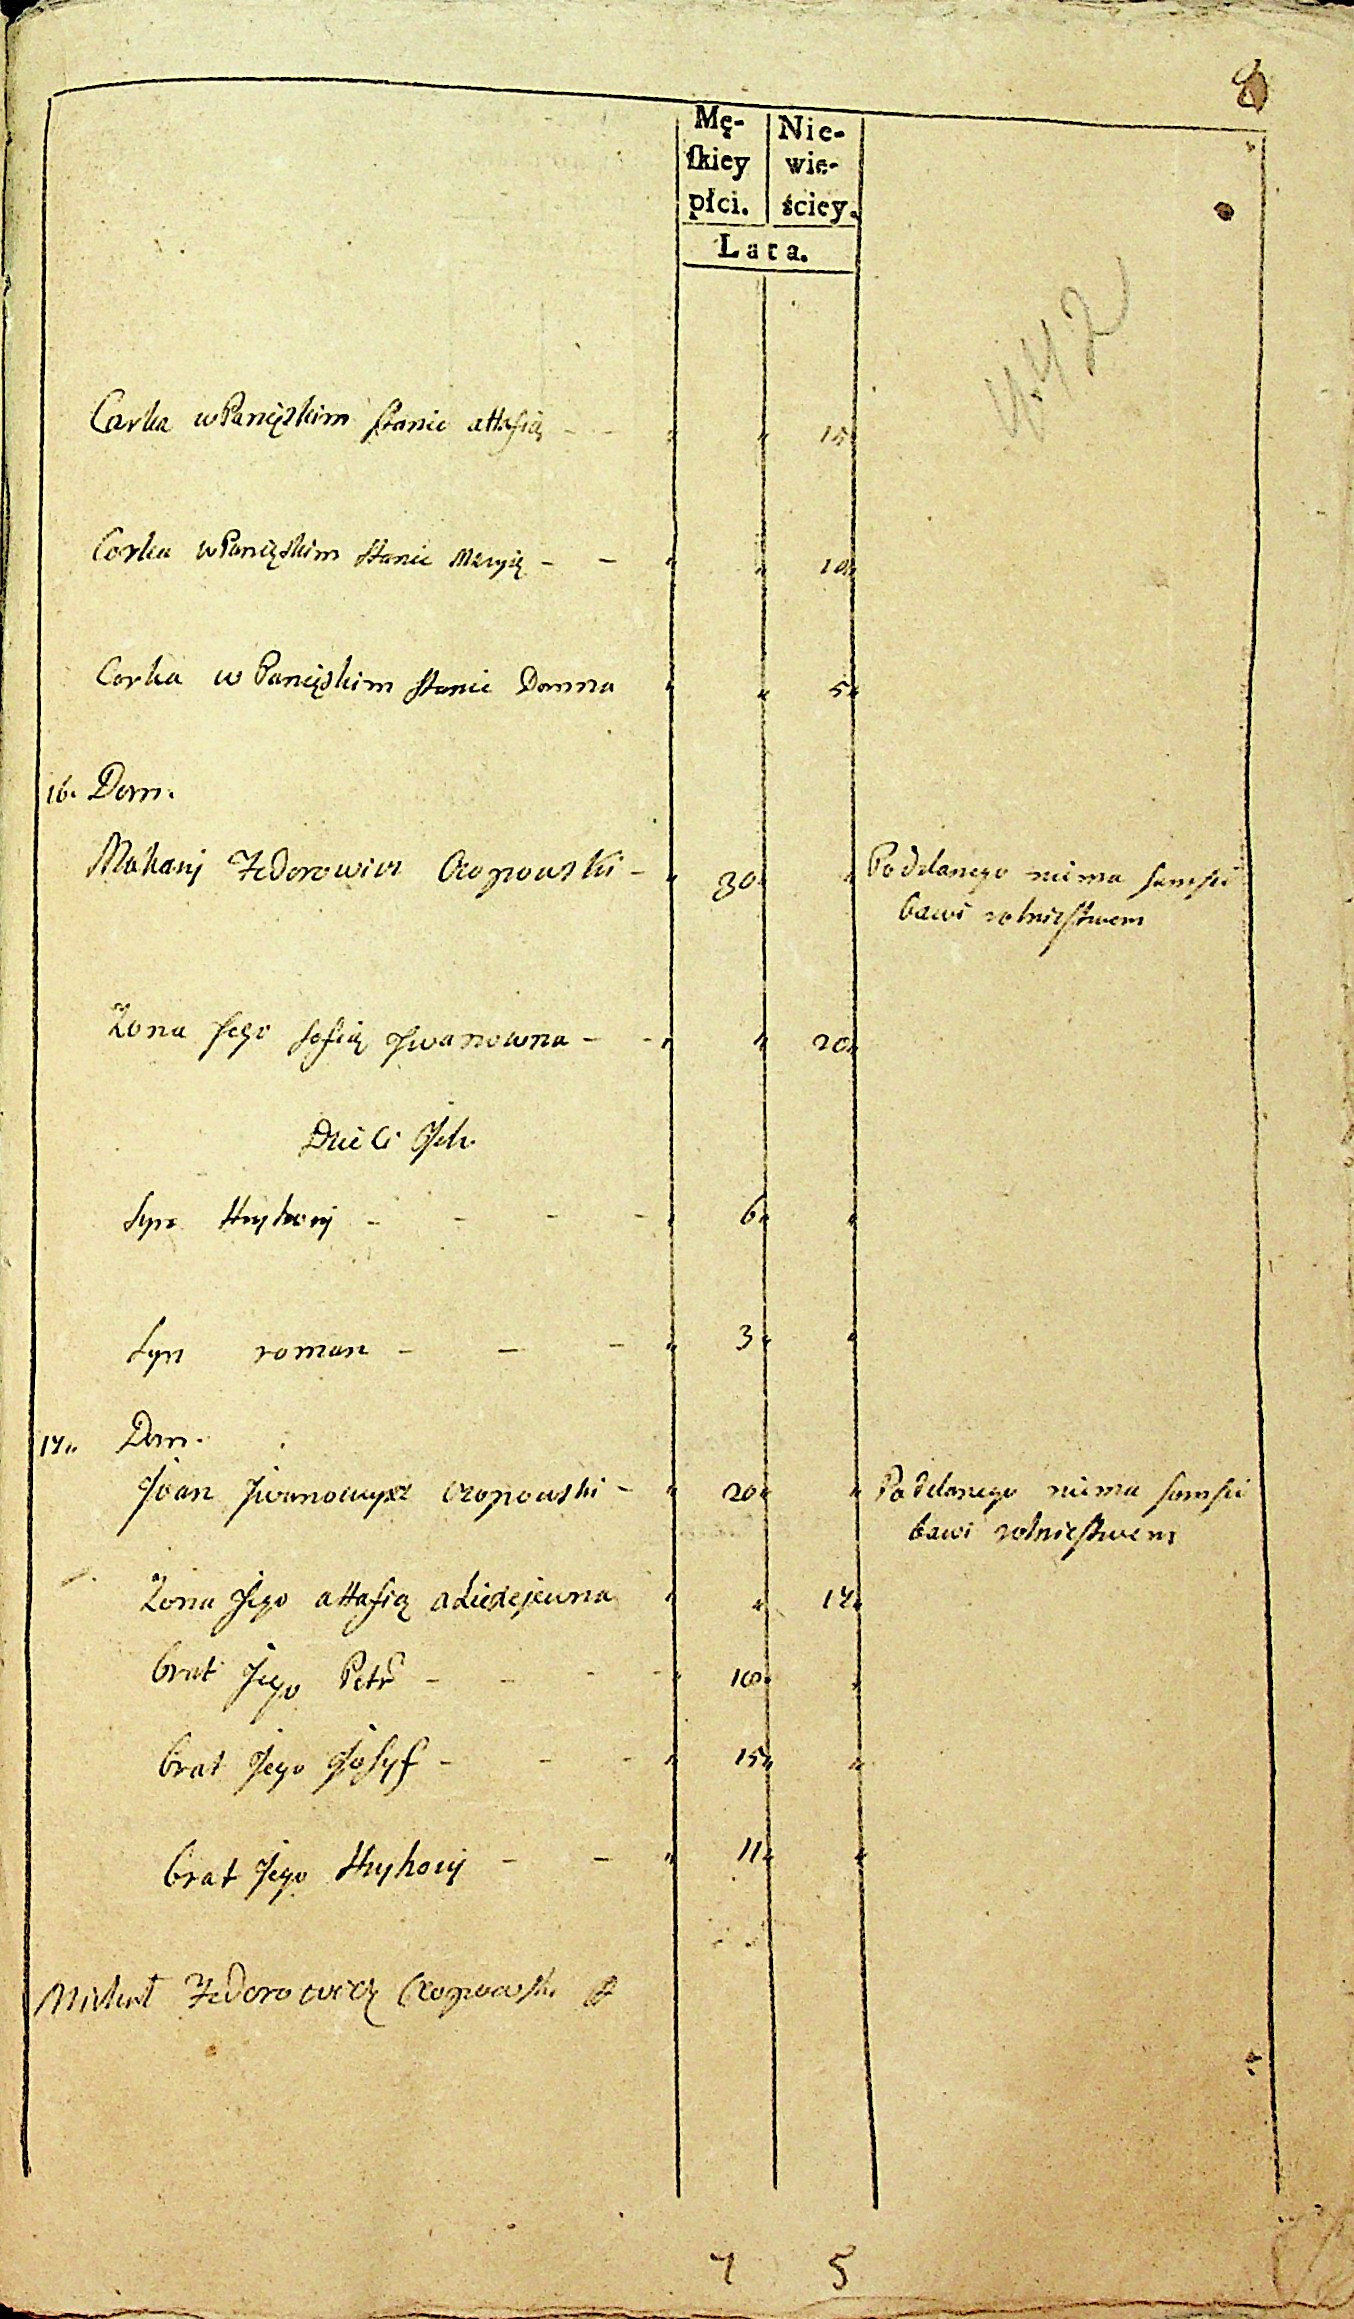 8
Mę-
skiey
płci.
Nie-
wie-
ściey.
Lata.
442
Corka w Panięskim stanie attafią - - " " 15"
Corka w Panięskim stanie Maryią - - " " 10"
Corka w Panięskim stanie Domna " " 5"
16. Dom.
Makarij Fedorowicz Czopowski - " 30" " Poddanego nima sam się
bawi rolnictwem
Żona Jego Sofią Jwanowna - - " " 20"
Dzieci Jch
Syn Hryhorij - - - - " 6" "
Syn roman - - - " 3" "
17" Dom.
Joan Jwanowycz Czopowski - " 20" " Poddanego nima sam się
bawi rolnictwem
Żona Jego attafią adiejewna " " 17"
brat Jego Petr - - - - " "
brat Jego Josyf - - - " 15" "
brat Jego Hryhorij - - " 11" "
Michał Fedorowicz Czopowski
7 5